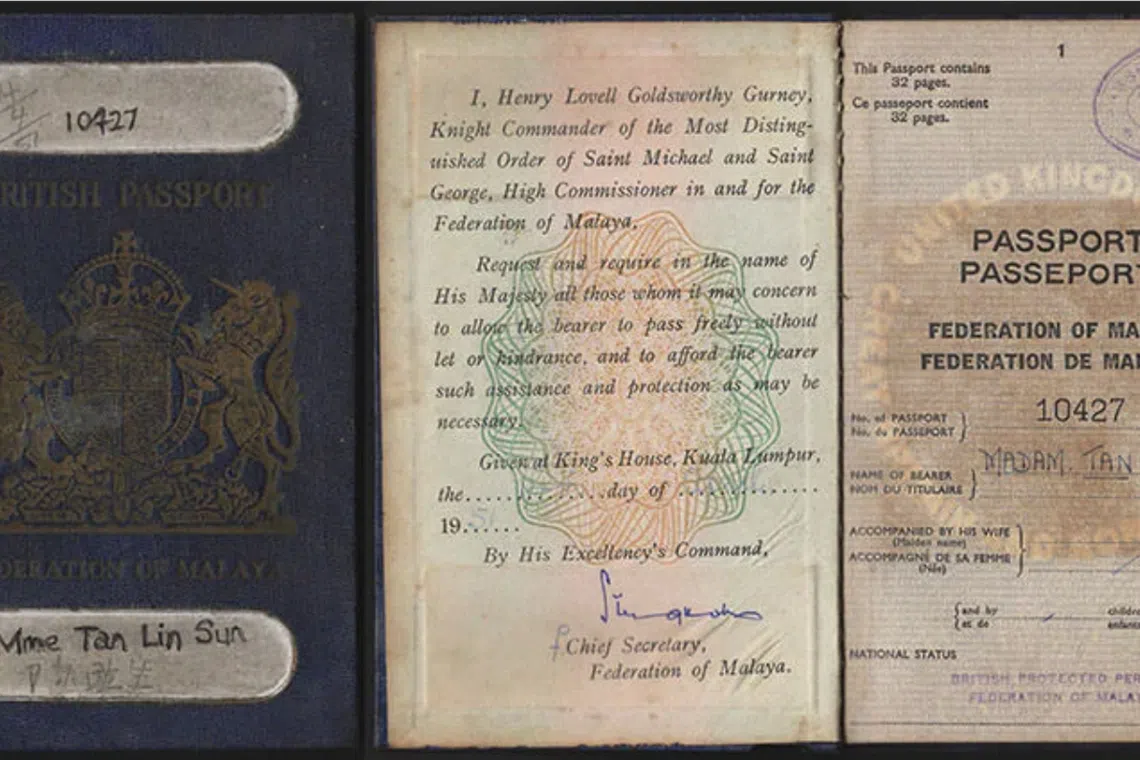 10427
BRITISH PASSPORT
FEDERATION OF MALAYA
Mme Tan Lin Sun
I, Henry Lovell Goldsworthy Gurney,
Knight Commander of the Most Disting-
uished Order of Saint Michael and Saint
George, High Commissioner in and for the
Federation of Malaya,
Request and require in the name of
His Majesty all those whom it may concern
to allow the bearer to pass freely without
let or hindrance, and to afford the bearer
such assistance and protection as may be
necessary.
Given at King's House, Kuala Lumpur,
the...............day of ...............
19......
By His Excellency's Command,
Chief Secretary,
Federation of Malaya.
1
This Passport contains
32 pages.
Ce passeport contient
32 pages.
UNITED KINGD
PASSPORT
PASSEPOR
FEDERATION OF MA
FEDERATION DE MA
No. of PASSPORT
No. du PASSEPORT
10427
NAME OF BEARER
NOM DU TITULAIRE
MADAM. TAN
ACCOMPANIED BY HIS WIFE
(Maiden name)
ACCOMPAGNÉ DE SA FEMME
(Née)
and by
et de
childre
enfants
NATIONAL STATUS
BRITISH PROTECTED PER
FEDERATION OF MALAY